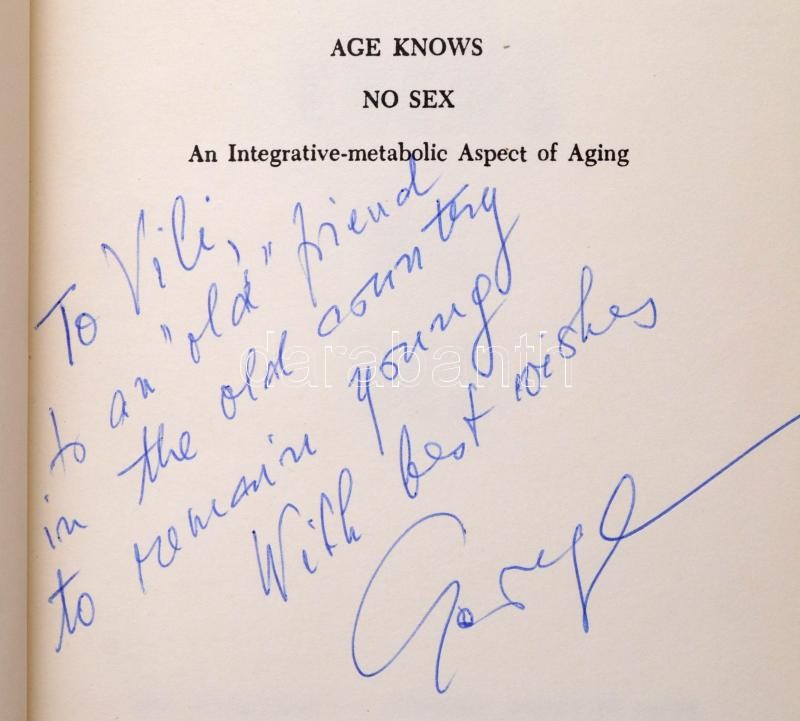 AGE KNOWS
NO SEX
An Integrative-metabolic Aspect of Aging
To Vili,
to an "old" friend
in the old country
to remain young
With best wishes
George
darabanth